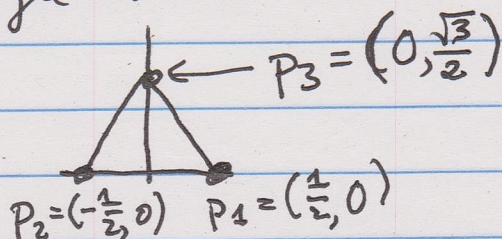 P3 = (0, √3/2)
P2 = (-1/2, 0) P1 = (1/2, 0)